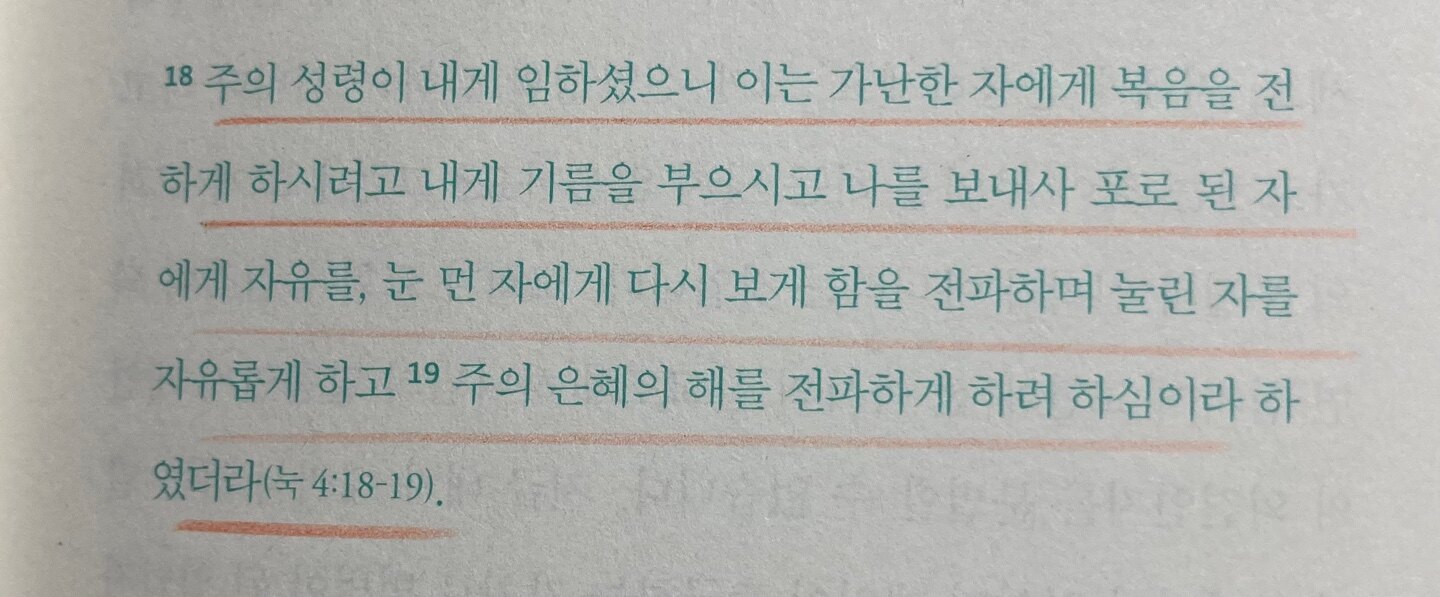 18 주의 성령이 내게 임하셨으니 이는 가난한 자에게 복음을 전
하게 하시려고 내게 기름을 부으시고 나를 보내사 포로 된 자
에게 자유를, 눈 먼 자에게 다시 보게 함을 전파하며 눌린 자를
자유롭게 하고 19 주의 은혜의 해를 전파하게 하려 하심이라 하
였더라(눅 4:18-19).